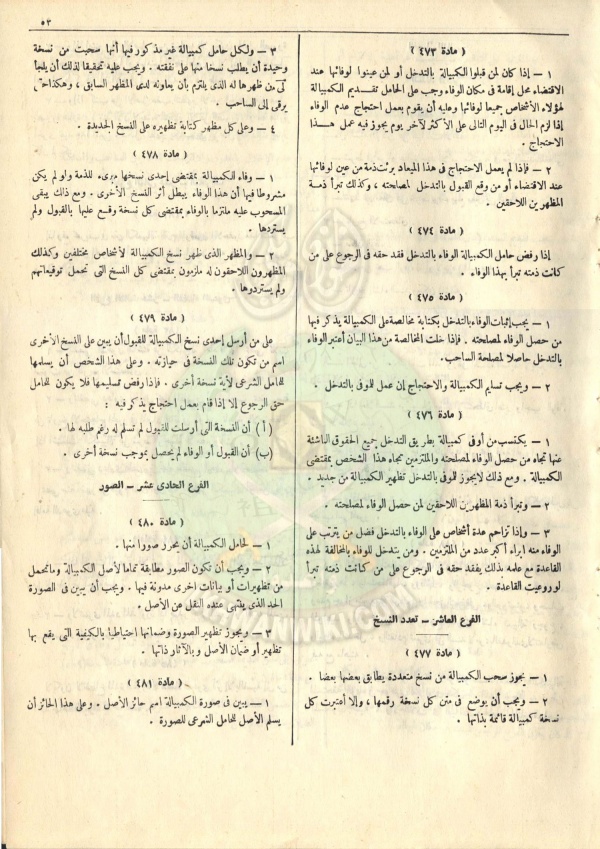 ٥٣
( مادة ٤٧٣ )
١ – إذا كان لمن قبلوا الكمبيالة بالتدخل أو لمن عينوا لوفائها عند
الاقتضاء محل إقامة فى مكان الوفاء وجب على الحامل تقديم الكمبيالة
لهؤلاء الأشخاص جميعا لوفائها وعليه أن يقوم بعمل احتجاج عدم الوفاء
إذا لزم الحال فى اليوم التالى على الأكثر لآخر يوم يجوز فيه عمل هذا
الاحتجاج .
٢ – فإذا لم يعمل الاحتجاج فى هذا الميعاد برئت ذمة من عين لوفائها
عند الاقتضاء أو من وقع القبول بالتدخل لمصلحته ، وكذلك تبرأ ذمة
المظهرين اللاحقين .
( مادة ٤٧٤ )
إذا رفض حامل الكمبيالة الوفاء بالتدخل فقد حقه فى الرجوع على من
كانت ذمته تبرأ بهذا الوفاء .
( مادة ٤٧٥ )
١ – يجب إثبات الوفاء بالتدخل بكتابة مخالصة على الكمبيالة يذكر فيها
من حصل الوفاء لمصلحته . فإذا خلت المخالصة من هذا البيان أعتبر الوفاء
بالتدخل حاصلا لمصلحة الساحب .
٢ – ويجب تسليم الكمبيالة والاحتجاج إن عمل للموفى بالتدخل .
( مادة ٤٧٦ )
١ – يكتسب من أوفى كمبيالة بطريق التدخل جميع الحقوق الناشئة
عنها تجاه من حصل الوفاء لمصلحته والملتزمين تجاه هذا الشخص بمقتضى
الكمبيالة . ومع ذلك لايجوز للموفى بالتدخل تظهير الكمبيالة من جديد .
٢ – وتبرأ ذمة المظهرين اللاحقين لمن حصل الوفاء لمصلحته .
٣ – وإذا تزاحم عدة أشخاص على الوفاء بالتدخل فضل من يترتب على
الوفاء منه ابراء أكبر عدد من الملتزمين . ومن يتدخل للوفاء بالمخالفة لهذه
القاعدة مع علمه بذلك يفقد حقه فى الرجوع على من كانت ذمته تبرأ
لو روعيت القاعدة .
الفرع العاشر – تعدد النسخ
( مادة ٤٧٧ )
١ – يجوز سحب الكمبيالة من نسخ متعددة يطابق بعضها بعضا .
٢ – ويجب أن يوضع فى متن كل نسخة رقمها ، وإلا أعتبرت كل
نسخة كمبيالة قائمة بذاتها .
٣ – ولكل حامل كمبيالة غير مذكور فيها أنها سحبت من نسخة
وحيدة أن يطلب نسخا منها على نفقته . ويجب عليه تحقيقا لذلك أن يلجأ
إلى من ظهرها له الذى يلتزم بأن يعاونه لدى المظهر السابق ، وهكذا حتى
يرقى إلى الساحب .
٤ – وعلى كل مظهر كتابة تظهيره على النسخ الجديدة .
( مادة ٤٧٨ )
١ – وفاء الكمبيالة بمقتضى إحدى نسخها مبرئ للذمة ولو لم يكن
مشروطا فيها أن هذا الوفاء يبطل أثر النسخ الأخرى . ومع ذلك يبقى
المسحوب عليه ملتزما بالوفاء بمقتضى كل نسخة وقع عليها بالقبول ولم
يستردها .
٢ – والمظهر الذى ظهر نسخ الكمبيالة لأشخاص مختلفين وكذلك
المظهرون اللاحقون له ملزمون بمقتضى كل النسخ التى تحمل توقيعاتهم
ولم يستردوها .
( مادة ٤٧٩ )
على من أرسل إحدى نسخ الكمبيالة للقبول أن يبين على النسخ الأخرى
اسم من تكون تلك النسخة فى حيازته . وعلى هذا الشخص أن يسلمها
للحامل الشرعى لأية نسخة أخرى . فإذا رفض تسليمها فلا يكون للحامل
حق الرجوع إلا إذا قام بعمل احتجاج يذكر فيه :
( أ ) أن النسخة التى أرسلت للقبول لم تسلم له رغم طلبه لها .
(ب) أن القبول أو الوفاء لم يحصل بموجب نسخة أخرى .
الفرع الحادى عشر – الصور
( مادة ٤٨٠ )
١ – لحامل الكمبيالة أن يحرر صورا منها .
٢ – ويجب أن تكون الصور مطابقة تماما لأصل الكمبيالة وماتحمل
من تظهيرات أو بيانات أخرى مدونة فيها . ويجب أن يبين فى الصورة
الحد الذى ينتهى عنده النقل عن الأصل .
٣ – ويجوز تظهير الصورة وضمانها احتياطيا بالكيفية التى يقع بها
تظهير أو ضمان الأصل وبالآثار ذاتها .
( مادة ٤٨١ )
١ – يبين فى صورة الكمبيالة اسم حائز الأصل . وعلى هذا الحائز أن
يسلم الأصل للحامل الشرعى للصورة .